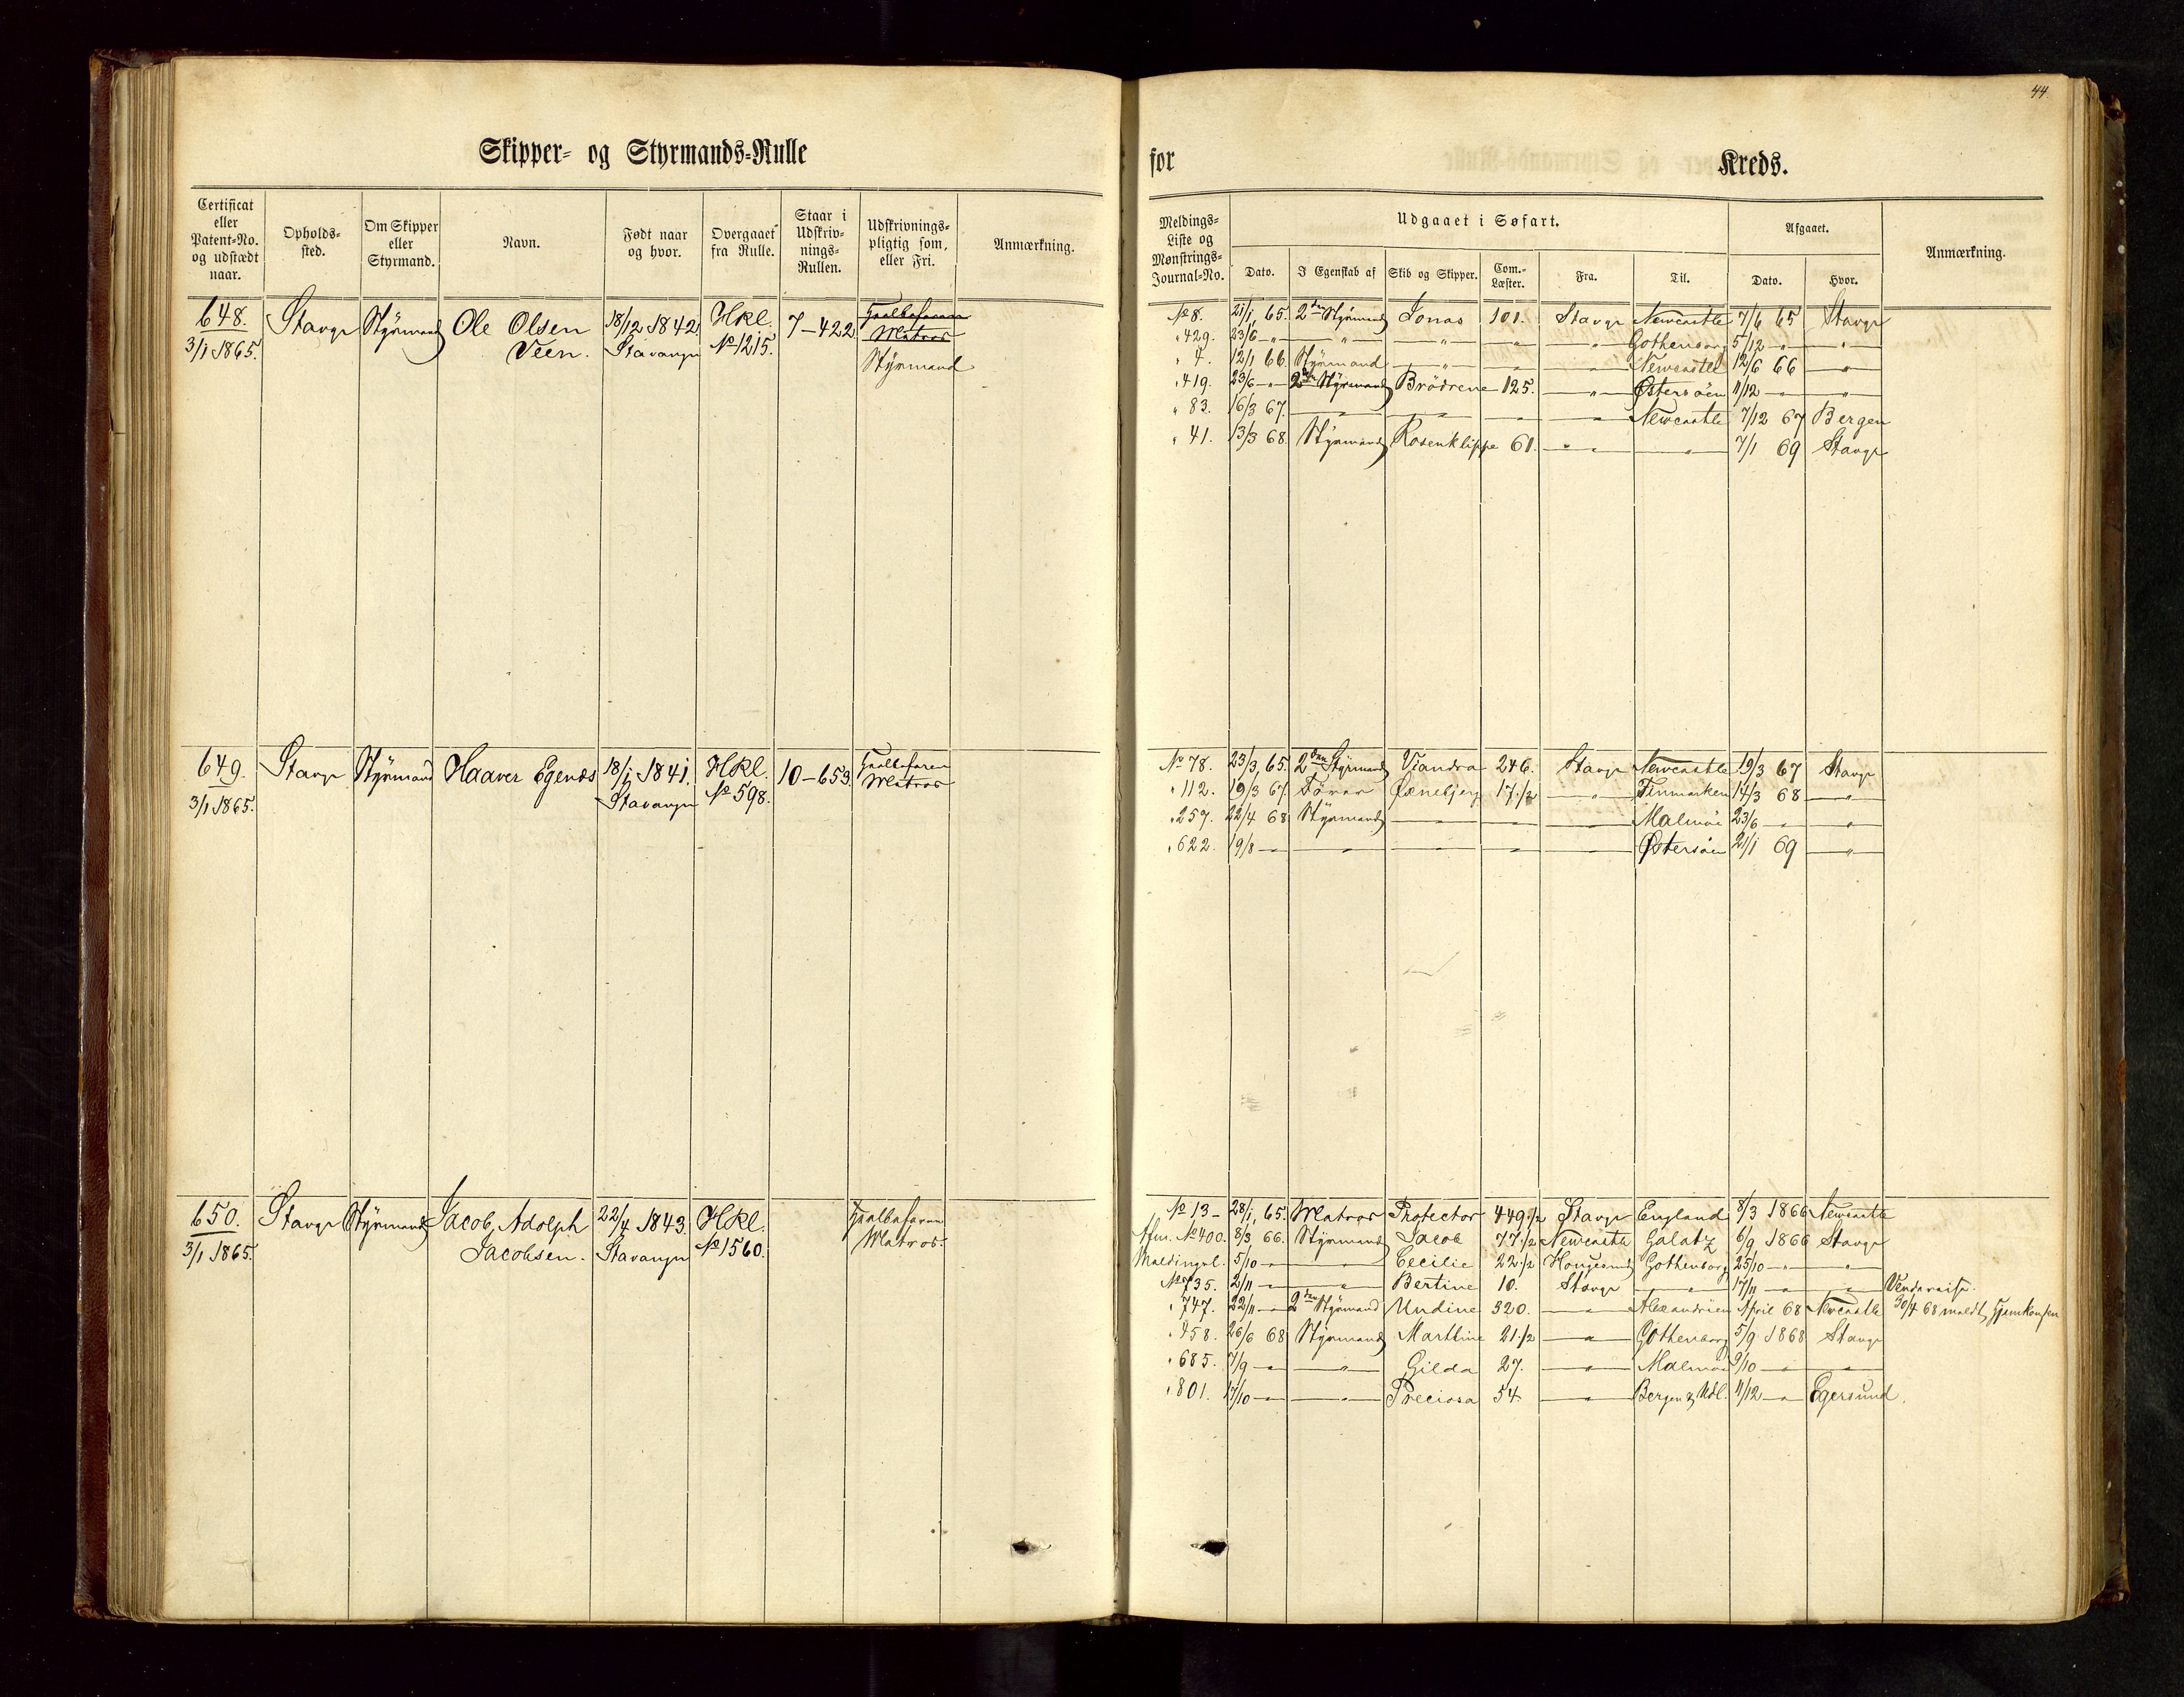 44.
Skipper- og Styrmands-Rulle
for Kreds.
Certificat eller Patent-No. og udstædt naar. Opholds-sted. Om Skipper eller Styrmand. Navn. Født naar og hvor. Overgaaet fra Rulle. Staar i Udskriv-nings-Rullen. Udskrivnings-pligtig som, eller Fri. Anmærkning.
Meldings-Liste og Mønstrings-Journal-No. Udgaaet i Søfart. Afgaaet. Anmærkning.
Dato. I Egenskab af Skib og Skipper. Com.-Læster. Fra. Til. Dato. Hvor.
648. Stavgr Styrmand Ole Olsen 18/12 1842 Hkl. 7-422
3/1 1865. Veen. Stavanger No 1215. Matros
Styrmand
No 8. 21/1 65. 2den Styrmand Jonas 101. Stavgr Newcastle 7/6 65 Stavgr
" 429. 23/6 - " - " " " " Gothenborg 5/12 - " - "
" 4. 12/1 66 Styrmand " " Newcastel 12/6 66 "
" 419. 23/6 - " - 2den Styrmand Brödrene 125. " Østersöen 11/12 - " - "
" 83. 16/3 67. " " " " Newcastle 7/12 67 Bergen
" 41. 13/3 68 Styrmand Rosenklippe 61. " " 7/1 69 Stavgr
649. Stavgr Styrmand Haaver Egenæs 18/1 1841. Hkl. 10-653
3/1 1865. Stavanger No 598. Matros
No 78. 23/3, 65. 2den Styrmand Viandra 246. Stavgr Newcastle 19/3 67 Stavgr
" 112. 19/3 67. 17 1/2 " Finmarken 14/3 68 "
" 257. 22/4 68 Styrmand " " " Malmöe 23/6 - " - "
" 622. 19/8 - " - " " " " Østersöen 21/1 69 "
650. Stavgr Styrmand Jacob Adolph 22/4 1843. Hkl.
3/1 1865. Jacobsen. Stavanger No 1560. Matros.
No 13 - 28/1, 65. Matros Protector 449 1/2 Stavgr England 8/3 1866 Newcastle
No 400. 8/3 66. Styrmand Jacob 77 1/2 Newcastle Galatz 6/9 1866 Stavgr
Meldingsl. 5/10 - " - " Cecilie 22 1/2 Gothenborg 25/10 - " - "
No 735. 2/11 - " - " Bertine 10. Stavgr " 17/11 - " - "
" 747. 22/11 - " - 2den Styrmand Undine 320. " Alexandrien April 68 Newcastle 30/4 68 meldt Hjemkomsten
" 458. 26/6 68 Styrmand Marthine 21 1/2 " Gothenborg 5/9 1868 Stavgr
" 685. 7/9 - " - " Gilda 27. " Malmöe 9/10 - " - "
" 801. 17/10 - " - " Preciosa 54 " Bergen & Udl. 11/12 - " - Egersund.